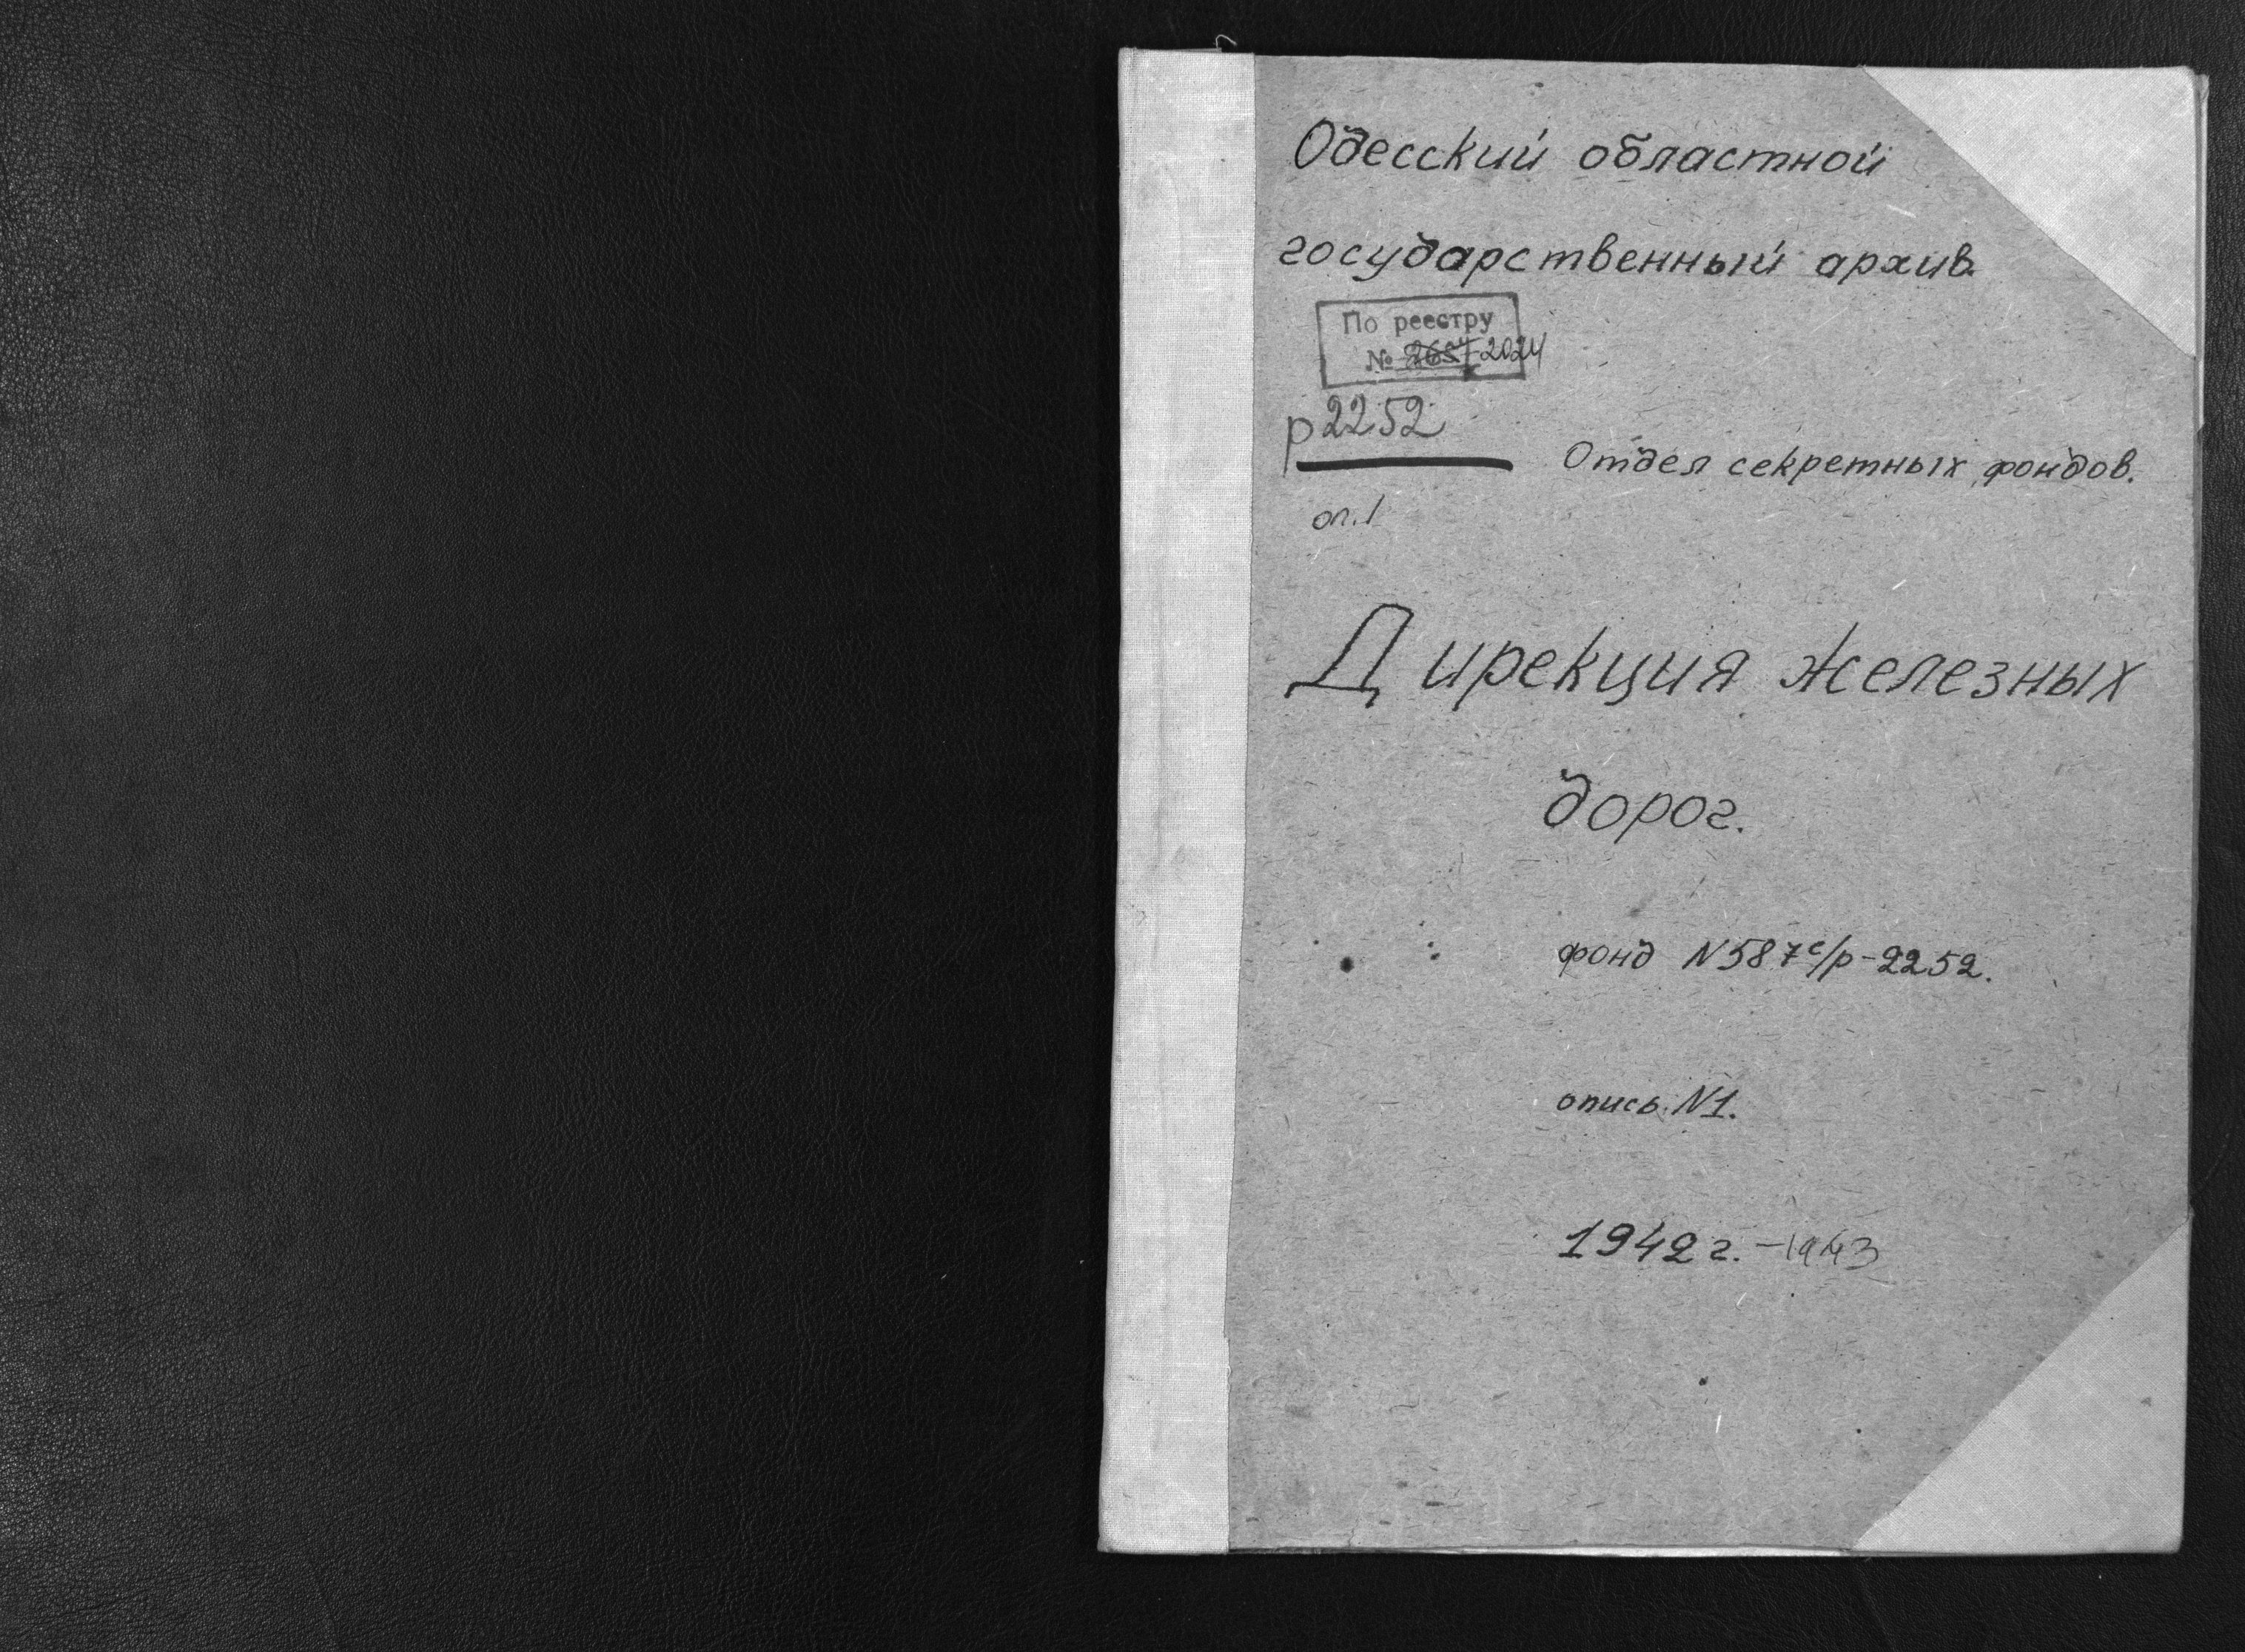 Одесский областной
государственный архив.
По реестру
№ 2024
р2252
Отдел секретных фондов.
оп.1
Дирекция железных
дорог.
фонд N587с/р-2252.
опись N1.
1942 г. -1943